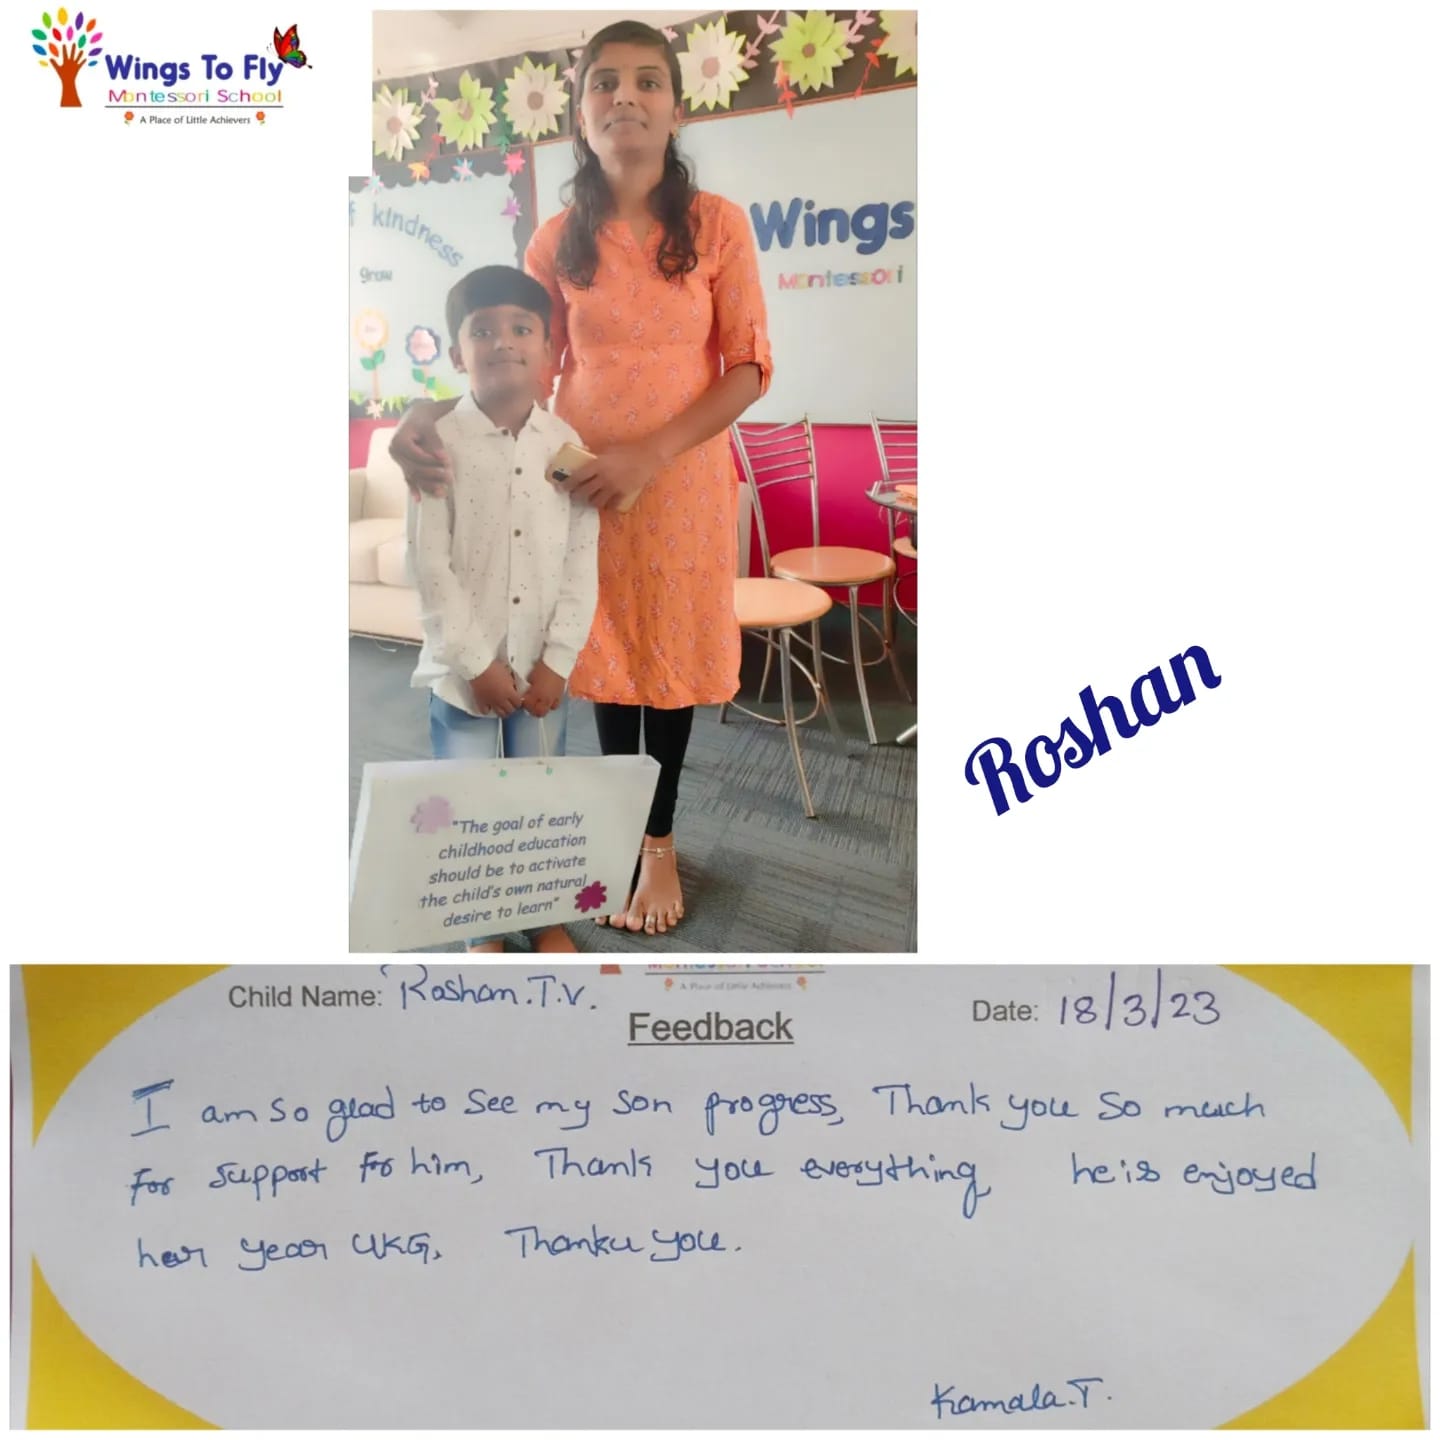 Wings To Fly
Montessori School
A Place of Little Achievers
f kindness
grow
Wings
Montessori
"The goal of early
childhood education
should be to activate
the child's own natural
desire to learn"
Roshan
Montessori School
A Place of Little Achievers
Child Name: Roshan.T.V.
Date: 18/3/23
Feedback
I am so glad to see my son progress, Thank you so much
For support for him, Thank you everything, he is enjoyed
her year UKG. Thanku you.
Kamala.T.